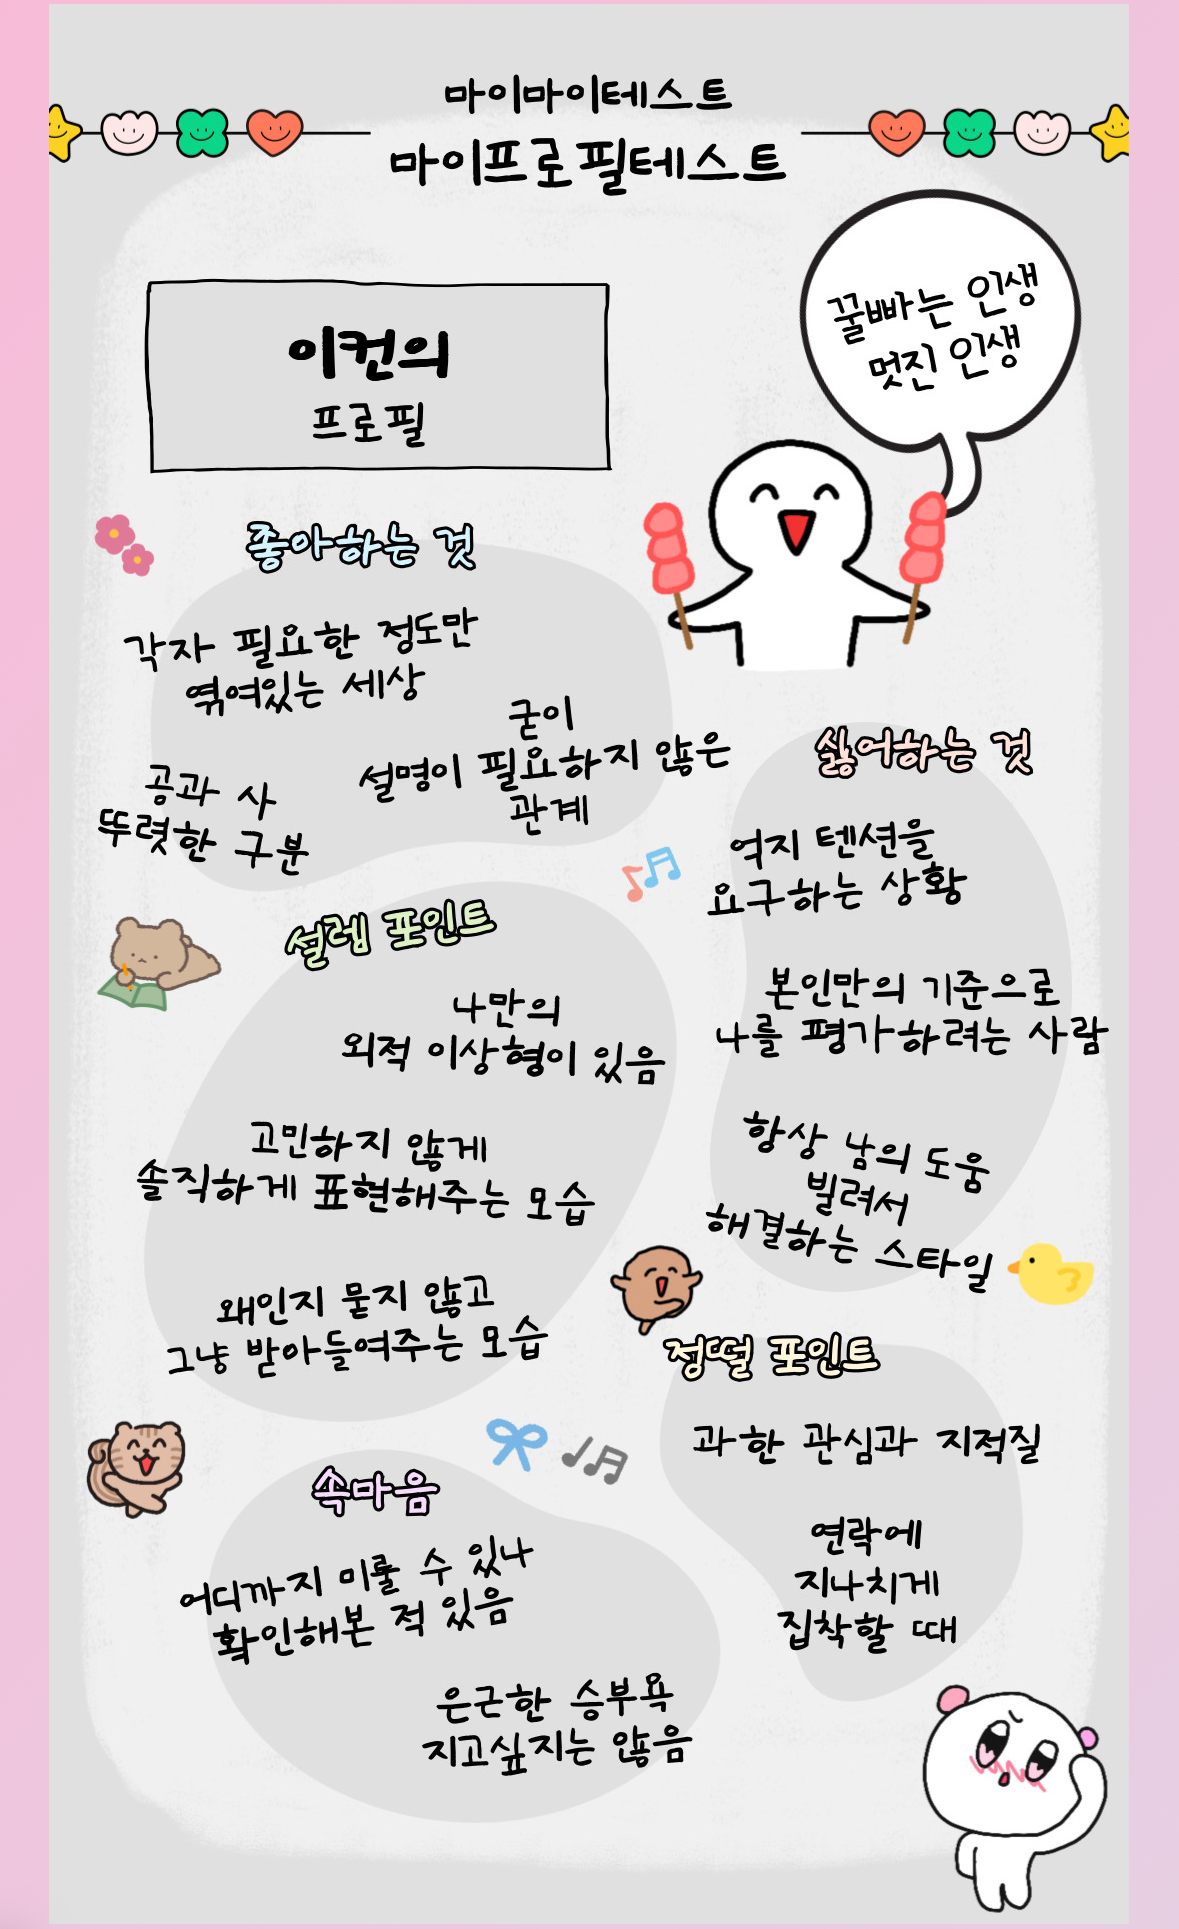 마이마이테스트
마이프로필테스트
꿀빠는 인생
멋진 인생
이컨의
프로필
좋아하는 것
각자 필요한 정도만
엮여있는 세상
굳이
설명이 필요하지 않은
관계
공과 사
뚜렷한 구분
싫어하는 것
억지 텐션을
요구하는 상황
본인만의 기준으로
나를 평가하려는 사람
항상 남의 도움
빌려서
해결하는 스타일
설렘 포인트
나만의
외적 이상형이 있음
고민하지 않게
솔직하게 표현해주는 모습
왜인지 묻지 않고
그냥 받아들여주는 모습
정떨 포인트
과한 관심과 지적질
연락에
지나치게
집착할 때
속마음
어디까지 미룰 수 있나
확인해본 적 있음
은근한 승부욕
지고싶지는 않음